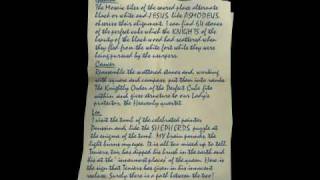 The Mosaic tiles of the sacred place alternate
black or white and JESUS, like ASMODEUS
observes their alignment. I can find 64 stones
of the perfect cube which the KNIGHTS of the
beauty of the black wood had scattered when
they fled from the white fort while they were
being pursued by the usurpers.
Cancer
Reassemble the scattered stones and, working
with square and compass, put them into ranks.
The Knightly Order of the Perfect Cube fits
within and gives structure to our Lady's
protector, the Heavenly quartet.
Leo
I visit the tomb of the celebrated painter
Poussin and, like the SHEPHERDS, puzzle at
the enigma of the tomb. MY brain pounds, the
light burns my eyes. It is all too mixed up to tell.
Teniers, too, has dipped his brush in the earth and
his at the "innermost places" of the queen. Here is
the sign that Teniers has given in his innocent
realism. Surely there is a path between the two!